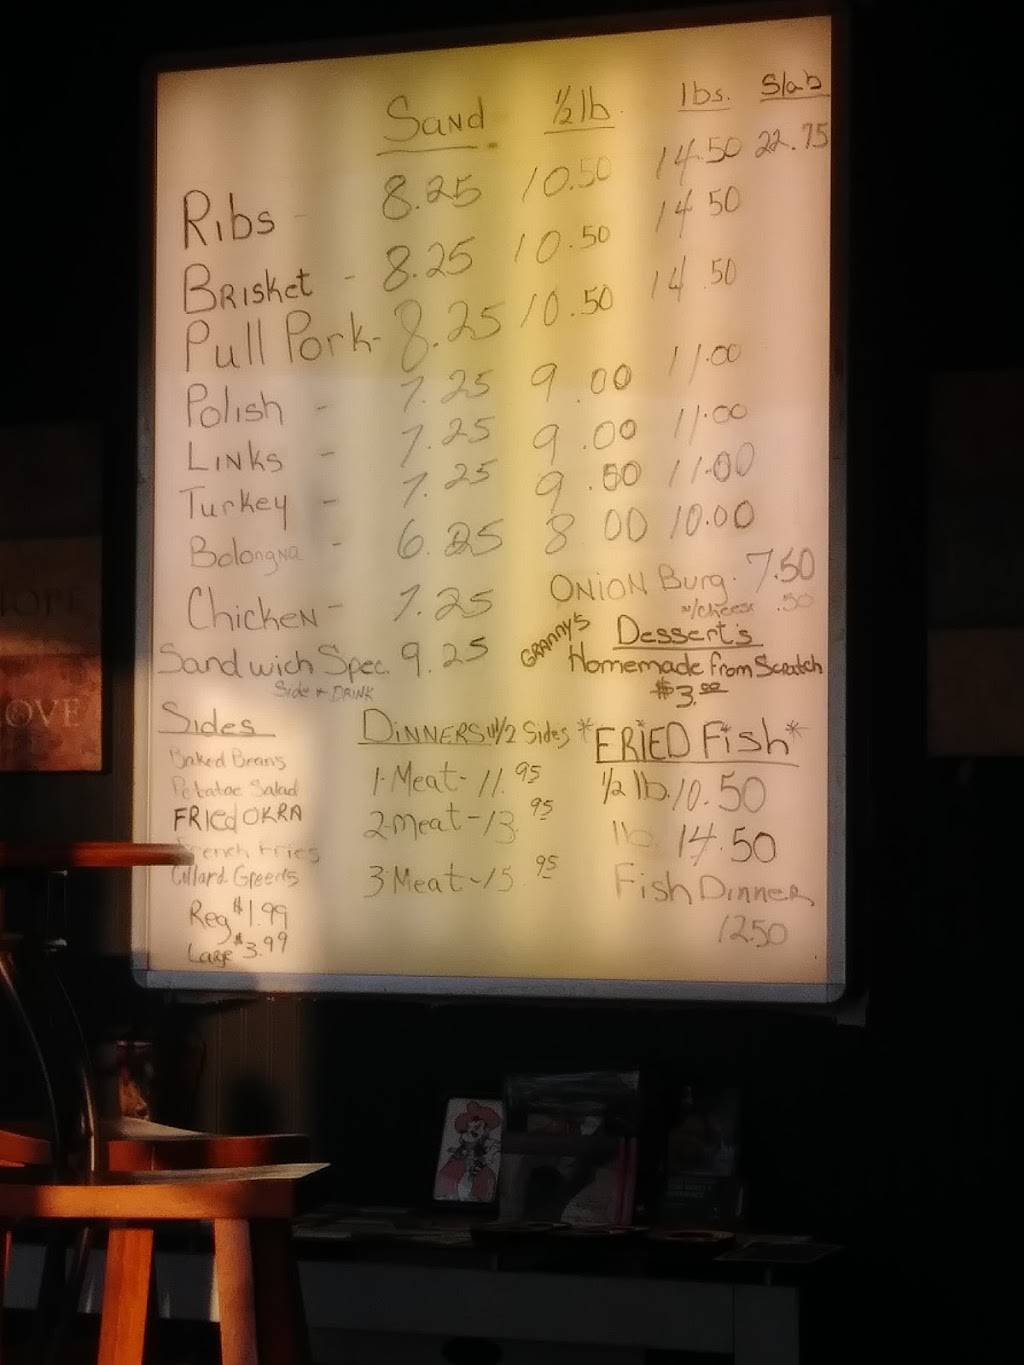 Sand ½ lb lbs. Slab
Ribs - 8.25 10.50 14.50 22.75
Brisket - 8.25 10.50 14 50
Pull Pork - 8.25 10.50 14.50
Polish - 7.25 9.00 11.00
Links - 7.25 9.00 11.00
Turkey - 7.25 9.00 11.00
Bologna - 6.25 8 00 10.00
Chicken - 7.25
Sandwich Spec. 9.25
Side + Drink
Onion Burg. 7.50
w/cheese .50
Granny's Dessert's
Homemade from Scratch
$3.00
Sides
Baked Beans
Potatoe Salad
Fried OKRA
French Fries
Collard Greens
Reg $1.99
Large $3.99
Dinners w/2 Sides
1-Meat - 11.95
2-Meat - 13.95
3-Meat - 15.95
*FRIED Fish*
½ lb. 10.50
lb 14.50
Fish Dinner
12.50
HOPE
LOVE